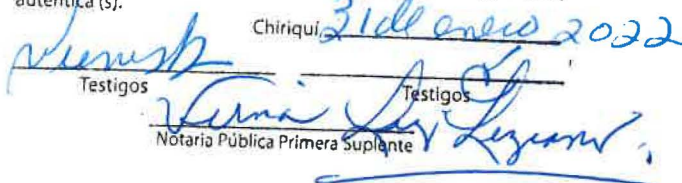 autentica (s).
Chiriquí, 31 de enero 2022
Testigos Testigos
Notaria Pública Primera Suplente